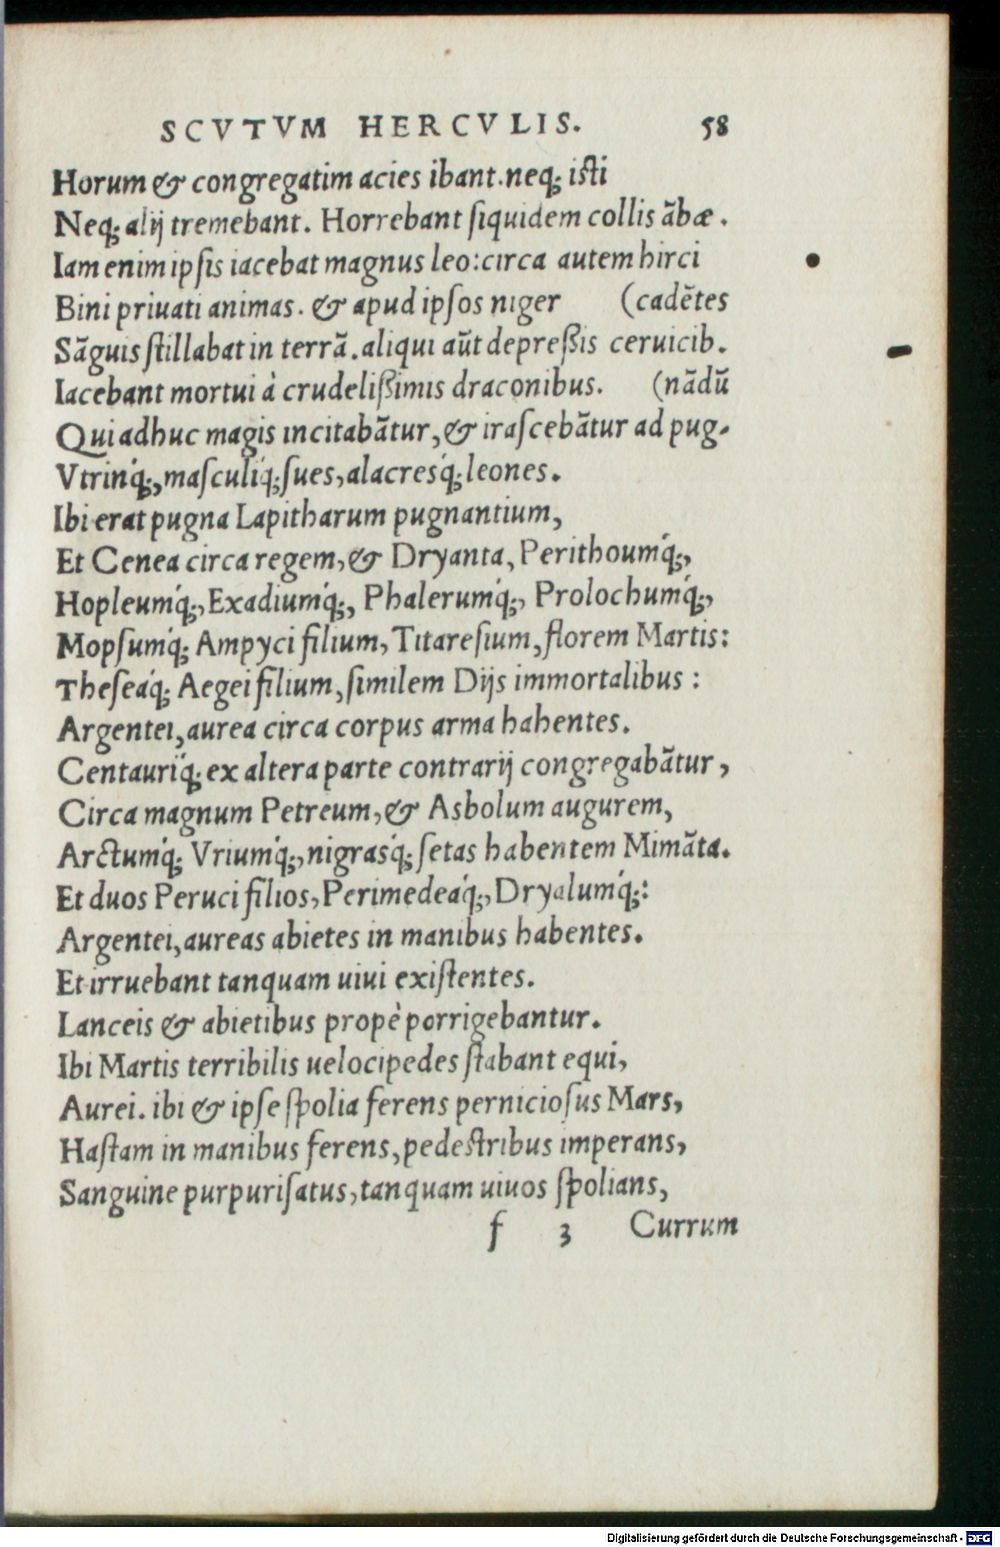 SCVTVM HERCVLIS. 58
Horum & congregatim acies ibant.neq; isti
Neq; alij tremebant. Horrebant siquidem collis ãbæ.
Iam enim ipsis iacebat magnus leo:circa autem hirci
Bini priuati animas. & apud ipsos niger (cadẽtes
Sãguis stillabat in terrã.aliqui aũt depreßis ceruicib.
Iacebant mortui à crudelißimis draconibus. (nãdũ
Qui adhuc magis incitabãtur,& irascebãtur ad pug-
Vtrinq́;,masculiq́;sues,alacresq́;leones.
Ibi erat pugna Lapitharum pugnantium,
Et Cenea circa regem,& Dryanta, Perithoumq́;,
Hopleumq́;,Exadiumq́;, Phalerumq́;, Prolochumq́;,
Mopsumq́; Ampyci filium, Titaresium,florem Martis:
Theseaq́; Aegei filium,similem Dijs immortalibus :
Argentei,aurea circa corpus arma habentes.
Centauriq́; ex altera parte contrarij congregabãtur,
Circa magnum Petreum,& Asbolum augurem,
Arctumq́; Vriumq́;,nigrasq́; setas habentem Mimãta.
Et duos Peruci filios,Perimedeaq́;,Dryalumq́;:
Argentei,aureas abietes in manibus habentes.
Et irruebant tanquam uiui existentes.
Lanceis & abietibus propè porrigebantur.
Ibi Martis terribilis uelocipedes stabant equi,
Aurei. ibi & ipse spolia ferens perniciosus Mars,
Hastam in manibus ferens,pedestribus imperans,
Sanguine purpurisatus,tanquam uiuos spolians,
f 3 Currum
Digitalisierung gefördert durch die Deutsche Forschungsgemeinschaft - DFG